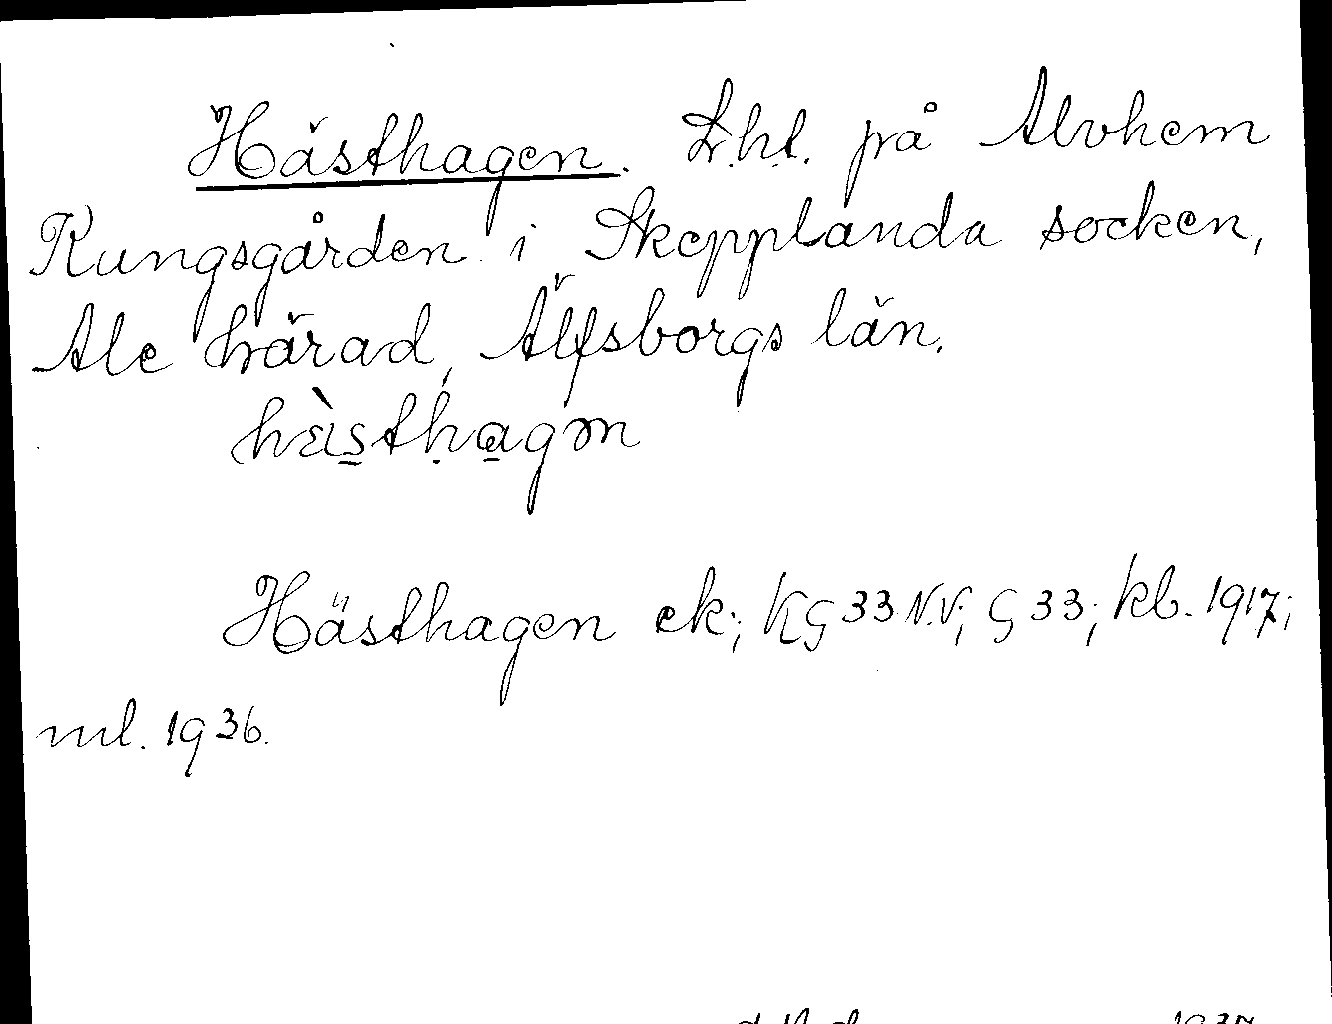 Hästhagen. Lht. på Alvhem
Kungsgården i Skepplanda socken,
Ale härad, Älfsborgs län.
hästhagən
Hästhagen ek; KG 33 N.V; G 33; kb. 1917;
ml. 1936.